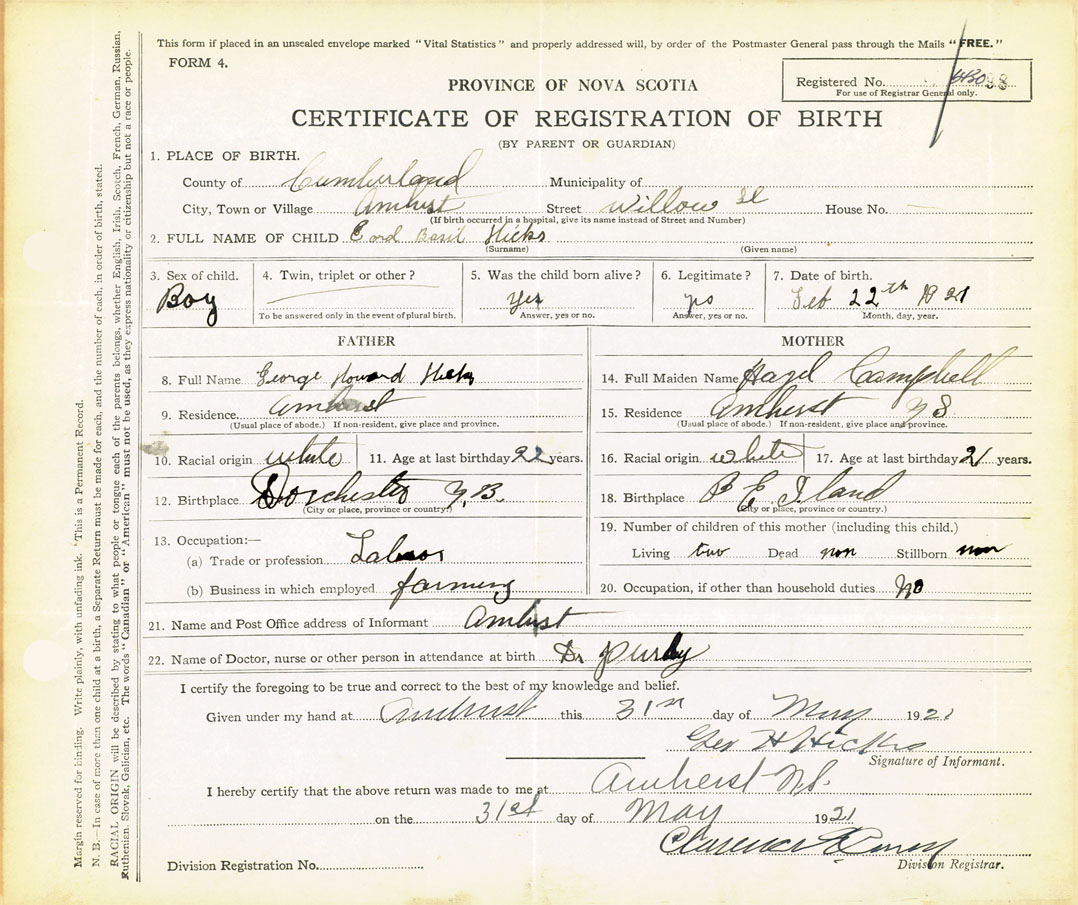 This form if placed in an unsealed envelope marked "Vital Statistics" and properly addressed will, by order of the Postmaster General pass through the Mails "FREE."
FORM 4.
Registered No.
For use of Registrar General only.
PROVINCE OF NOVA SCOTIA
CERTIFICATE OF REGISTRATION OF BIRTH
(BY PARENT OR GUARDIAN)
1. PLACE OF BIRTH.
County of Cumberland Municipality of
City, Town or Village Amhist Street Willow St House No. —
(If birth occurred in a hospital, give its name instead of Street and Number)
2. FULL NAME OF CHILD Basil Hicks
(Surname) (Given name)
3. Sex of child. 4. Twin, triplet or other? 5. Was the child born alive? 6. Legitimate? 7. Date of birth.
Boy Yes Feb 22th 1921
To be answered only in the event of plural birth. Answer, yes or no. Answer, yes or no. Month, day, year.
FATHER MOTHER
8. Full Name George Howard Hicks 14. Full Maiden Name Hazel Campbell
9. Residence. Amherst 15. Residence Amherst N S.
(Usual place of abode.) If non-resident, give place and province. (Usual place of abode.) If non-resident, give place and province.
10. Racial origin white 11. Age at last birthday 22 years. 16. Racial origin white 17. Age at last birthday 21 years.
12. Birthplace Dorchester N.B. 18. Birthplace P E Iland
(City or place, province or country.) (City or place, province or country.)
13. Occupation:— 19. Number of children of this mother (including this child.)
(a) Trade or profession Labor Living two Dead non Stillborn non
(b) Business in which employed farming 20. Occupation, if other than household duties No
21. Name and Post Office address of Informant Amhist
22. Name of Doctor, nurse or other person in attendance at birth Dr Purdy
I certify the foregoing to be true and correct to the best of my knowledge and belief.
Given under my hand at Amhurst this 31st day of May 1921
Geo H Hicks
Signature of Informant.
I hereby certify that the above return was made to me at Amherst N.S.
on the 31st day of May 1921
Clarence
Division Registrar.
Division Registration No.
Margin reserved for binding. Write plainly, with unfading ink. This is a Permanent Record.
N. B.—In case of more than one child at a birth, a Separate Return must be made for each, and the number of each, in order of birth, stated.
RACIAL ORIGIN will be described by stating to what people or tongue each of the parents belongs, whether English, Irish, Scotch, French, German, Russian,
Ruthenian, Slovak, Galician, etc. The words "Canadian" or "American" must not be used, as they express nationality or citizenship but not a race or people.